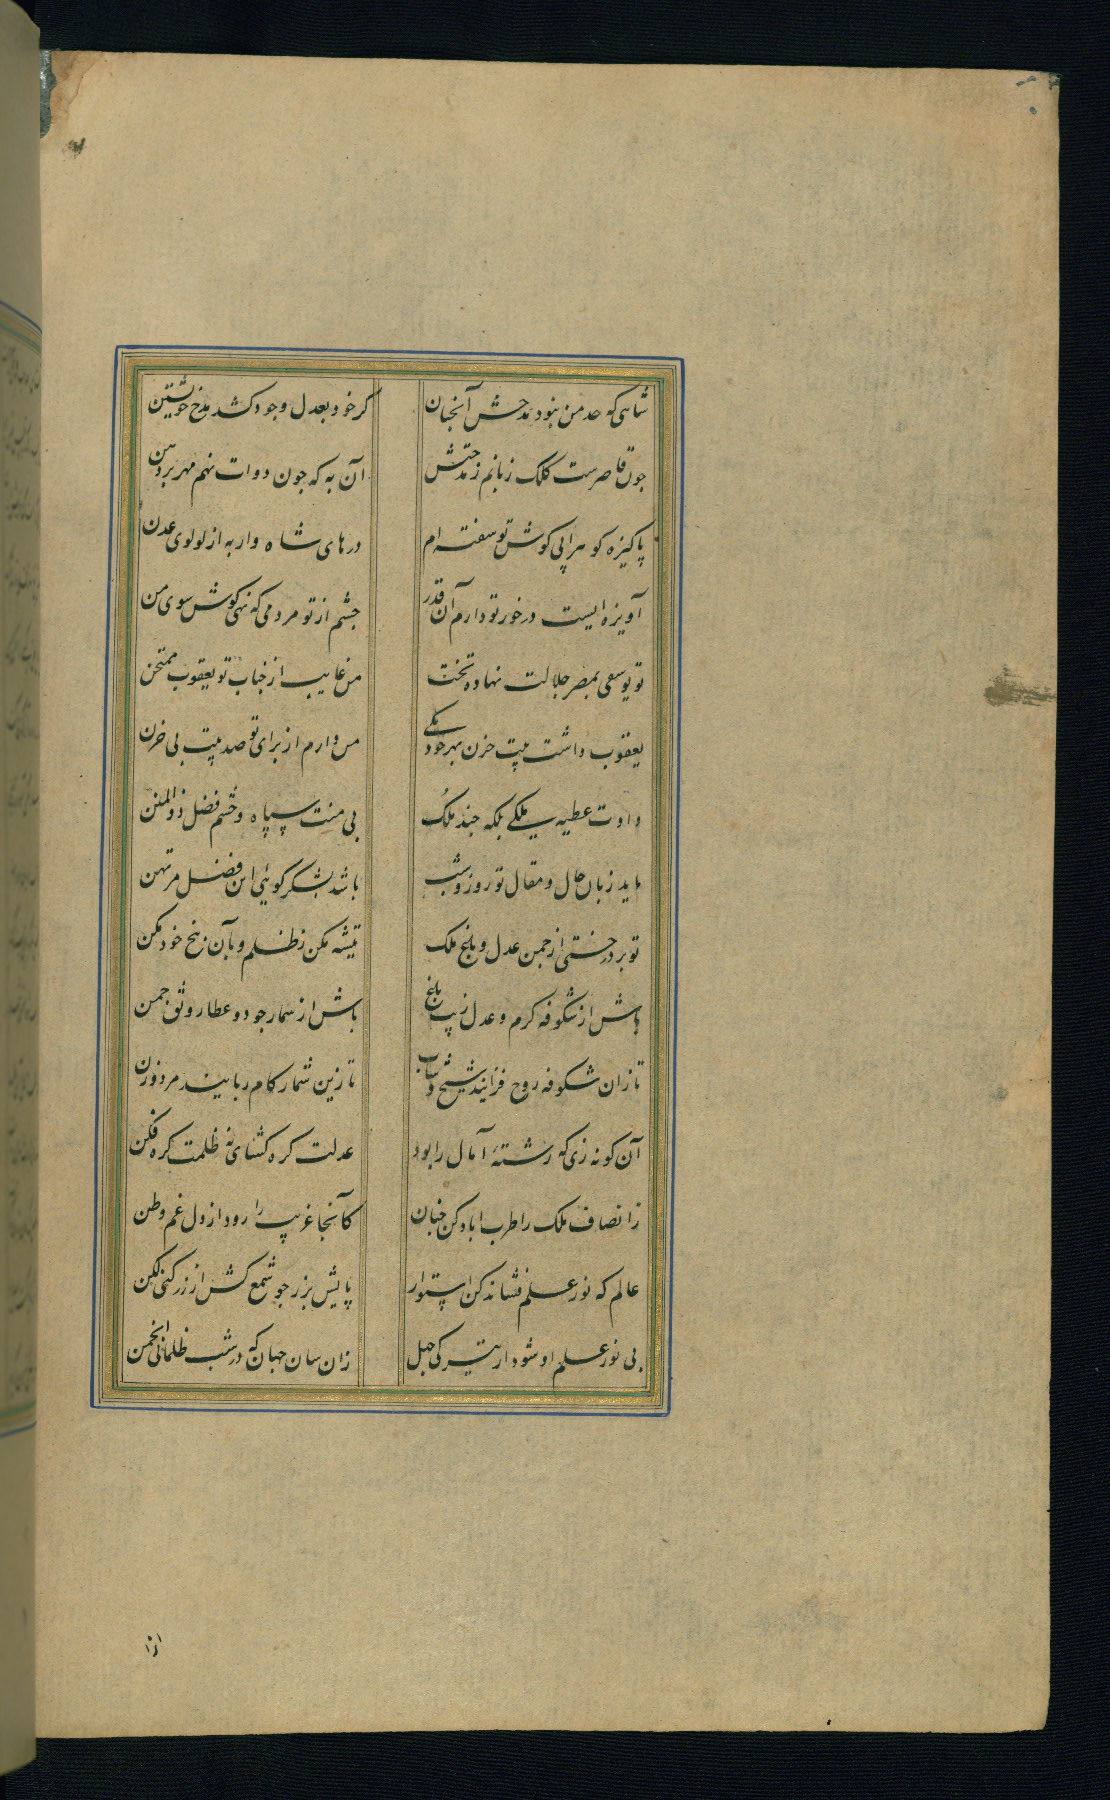 شاهی که حد من نبود مدحش آنچنان
کر خود بعدل وجود کشد مدح خویشتن
چون قاصرست کلک زبانم ز مدحتش
آن به که چون دوات نهم مهر بر دهن
پاکیزه کوهرا پی کوش تو سفته ام
درهای شاه وار به از لولوی عدن
آویزه ایست در خور تو دارم آن قدر
چشم از تو مردمی که نهی کوش سوی من
تو یوسفی بمصر جلالت نهاده تخت
من غایب از جناب تو یعقوب ممتحن
یعقوب داشت بیت حزن بهر خود یکی
من دارم از برای تو صد بیت بی حزن
دادت عطیه ملکی بلکه چند ملک
بی منت سپاه و حشم فضل ذوالمنن
باید زبان حال و مقال تو روز و شب
باشد بشکر کویی این فضل مرتهن
تو بر درختی از چمن عدل و بیخ ملک
تیشه مکن ز ظلم و بآن بیخ خود مکن
باش از شکوفه کرم و عدل زیب باغ
باش از ثمار جود و عطا رونق چمن
تا زان شکوفه روح فزایند شیخ و شاب
تا زین ثمار کام ربایند مرد و زن
آن کونه زی که رشته آمال را بود
عدلت کره کشای نه ظلمت کره فکن
ز انصاف ملک را طرب اباد کن چنان
کآنجا غریب را رود از دل غم وطن
عالم که نور علم فشاند کن استوار
پایش بزر چو شمع کش از زر کنی لکن
بی نور علم او شود از تیرکی جهل
زان سان جهان که در شب ظلمانی انجمن